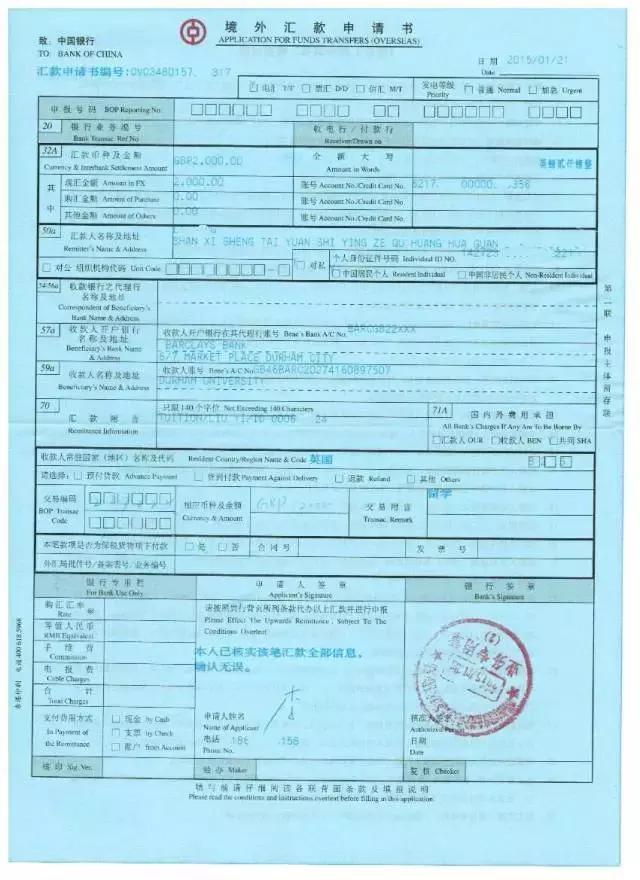 境外汇款申请书
APPLICATION FOR FUNDS TRANSFERS (OVERSEAS)
致：中国银行
TO: BANK OF CHINA
日期 2015/01/21
Date
汇款申请书编号:OV03480157. 317
电汇 T/T 票汇 D/D 信汇 M/T
发电等级 Priority 普通 Normal 加急 Urgent
申报号码 BOP Reporting No.
20 银行业务编号 Bank Transac. Ref No
收电行/付款行 Receiver/Drawn on
32A 汇款币种及金额 Currency & Interbank Settlement Amount
GBP2,000.00
金额大写 Amount in Words
英镑贰仟镑整
其中
现汇金额 Amount in FX 2,000.00
账号 Account No./Credit Card No. 6217. 00000. .356
购汇金额 Amount of Purchase 0.00
账号 Account No./Credit Card No.
其他金额 Amount of Others 0.00
账号 Account No./Credit Card No.
50a 汇款人名称及地址 Remitter's Name & Address
SHAN XI SHENG TAI YUAN SHI YING ZE QU HUANG HUA GUAN
对公 组织机构代码 Unit Code
对私
个人身份证件号码 Individual ID NO. 142723 221
中国居民个人 Resident Individual 中国非居民个人 Non-Resident Individual
54/56a 收款银行之代理行名称及地址
Correspondent of Beneficiary's Bank Name & Address
57a 收款人开户银行名称及地址 Beneficiary's Bank Name & Address
收款人开户银行在其代理行账号 Bene's Bank A/C No. BARCGB22XXX
BARCLAYS BANK
6/7 MARKET PLACE DURHAM CITY
59a 收款人名称及地址 Beneficiary's Name & Address
收款人账号 Bene's A/C No. GB46BARC20274160897507
DURHAM UNIVERSITY
70 汇款附言 Remittance Information
只限140个字位 Not Exceeding 140 Characters
TUITION/LIU YI/ID 0006 24
71A 国内外费用承担
All Bank's Charges If Any Are To Be Borne By
汇款人 OUR 收款人 BEN 共同 SHA
收款人常驻国家（地区）名称及代码 Resident Country/Region Name & Code 英国
请选择： 预付货款 Advance Payment 货到付款 Payment Against Delivery 退款 Refund 其他 Others
交易编码 BOP Transac Code
相应币种及金额 Currency & Amount
GBP
交易附言 Transac. Remark
留学
本笔款项是否为保税货物项下付款 是 否
合同号
发票号
外汇局批件号/备案表号/业务编号
银行专用栏 For Bank Use Only
申请人签章 Applicant's Signature
银行签章 Bank's Signature
购汇汇率 Rate
等值人民币 RMB Equivalent
手续费 Commission
电报费 Cable Charges
合计 Total Charges
请按照贵行背页所列条款代办以上汇款并进行申报
Please Effect The Upwards Remittance, Subject To The Conditions Overleaf:
本人已核实该笔汇款全部信息，
确认无误。
支付费用方式 In Payment of the Remittance
现金 by Cash
支票 by Check
账户 from Account
申请人姓名 Name of Applicant
电话 Phone No. 186 .156
核准人签字 Authorized Person
日期 Date
核印 Sig. Ver.
经办 Maker
复核 Checker
填写前请仔细阅读各联背面条款及填报说明
Please read the conditions and instructions overleaf before filling in this application.
第一联 申报主体留存联